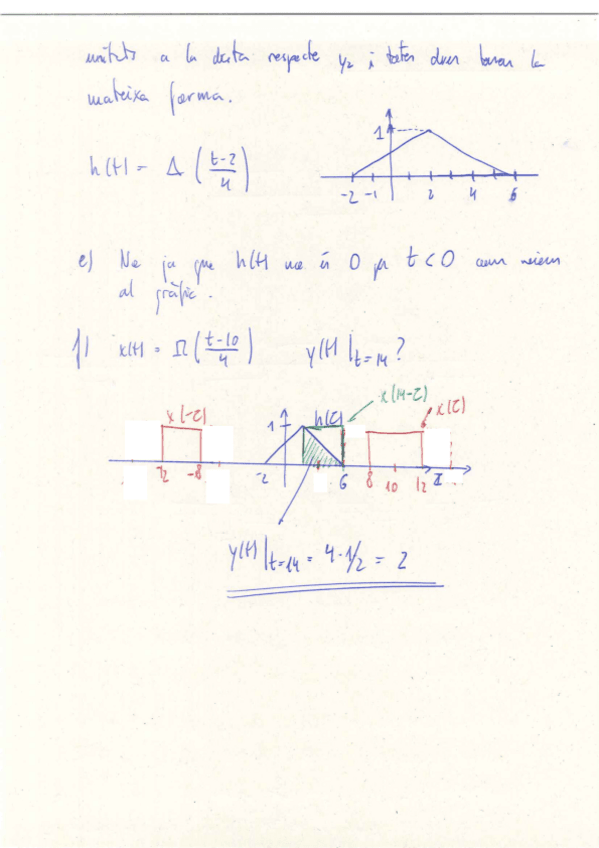 unitats a la dreta respecte y₂ i totes duen tenen la
mateixa forma.
h(t) = Δ ( (t-2)/4 )
1
-2 -1 2 4 6
e) No ja que h(t) no és 0 per t < 0 com veiem
al gràfic.
f) x(t) = Π ( (t-10)/4 ) y(t)|t=14 ?
x(-τ) 1 h(τ) x(14-τ) x(τ)
-12 -8 -2 6 8 10 12 τ
y(t)|t=14 = 4·1/2 = 2